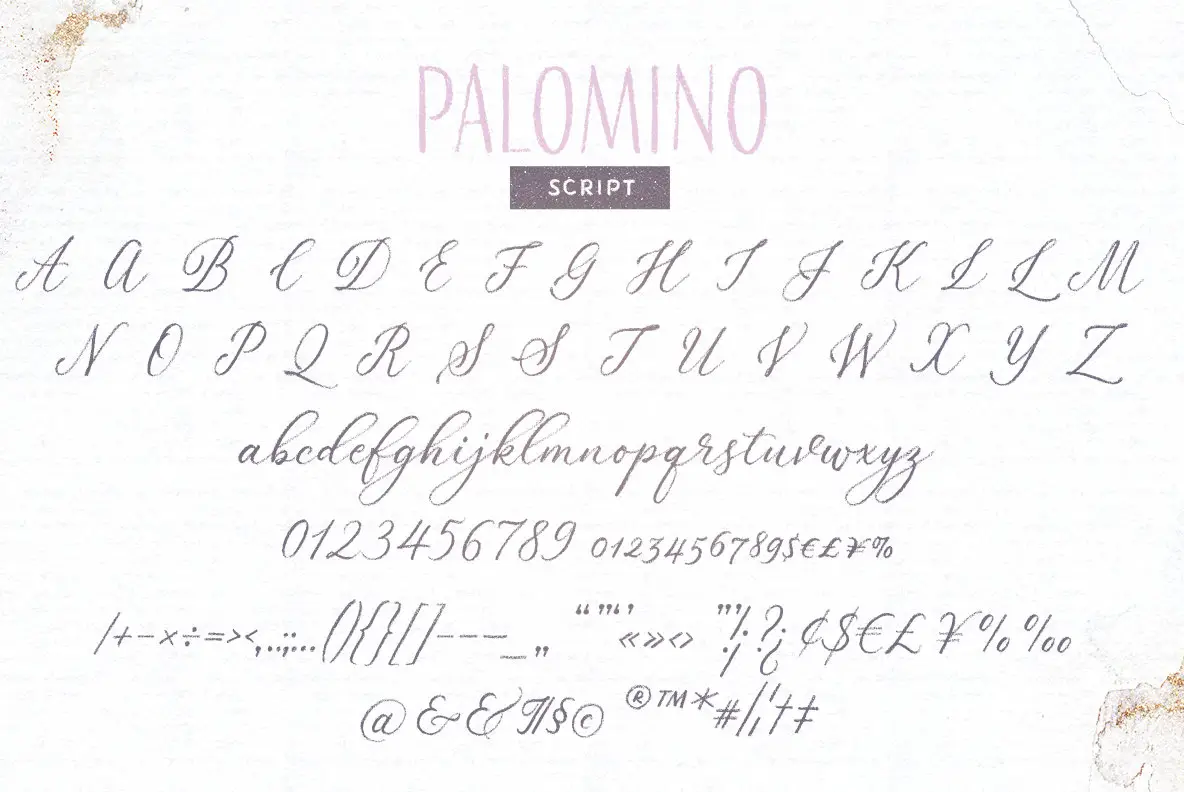 PALOMINO
SCRIPT
A A B C D E F G H I J K L L M
N O P Q R S S T U V W X Y Z
abcdefghijklmnopqrstuvwxyz
0123456789 0123456789$€£¥%
/+−×÷=><,..:;...(){}[]-–—_„ “”‘’«»‹› "'!¡?¿¢$€£¥%‰
@&&¶§©®™*#/|¦†‡